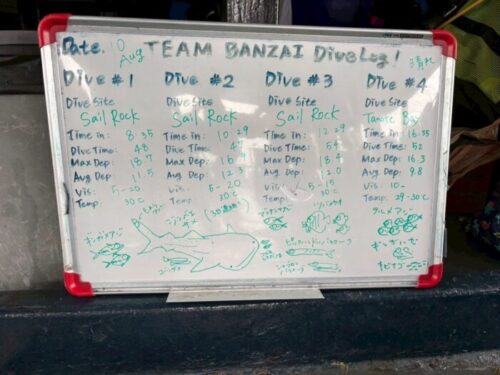 Date. 10 Aug TEAM BANZAI DiveLog! 晴れ
Dive #1
Dive Site
Sail Rock
Time in: 8:35
Dive Time: 48
Max Dep: 18.7
Avg Dep: 11.5
Vis: 5-20
Temp: 30℃
Dive #2
Dive Site
Sail Rock
Time in: 10:29
Dive Time:
Max Dep:
Avg Dep: 12.3
Vis: 5-20
Temp: 30℃
Dive #3
Dive Site
Sail Rock
Time in: 12:29
Dive Time: 54
Max Dep: 18.4
Avg Dep: 12.0
Vis: 5-15
Temp: 30℃
Dive #4
Dive Site
Time in: 16:35
Dive Time: 52
Max Dep: 16.3
Avg Dep: 9.8
Vis: 10-
Temp: 29-30℃
ギンガメアジ
コバンザメ